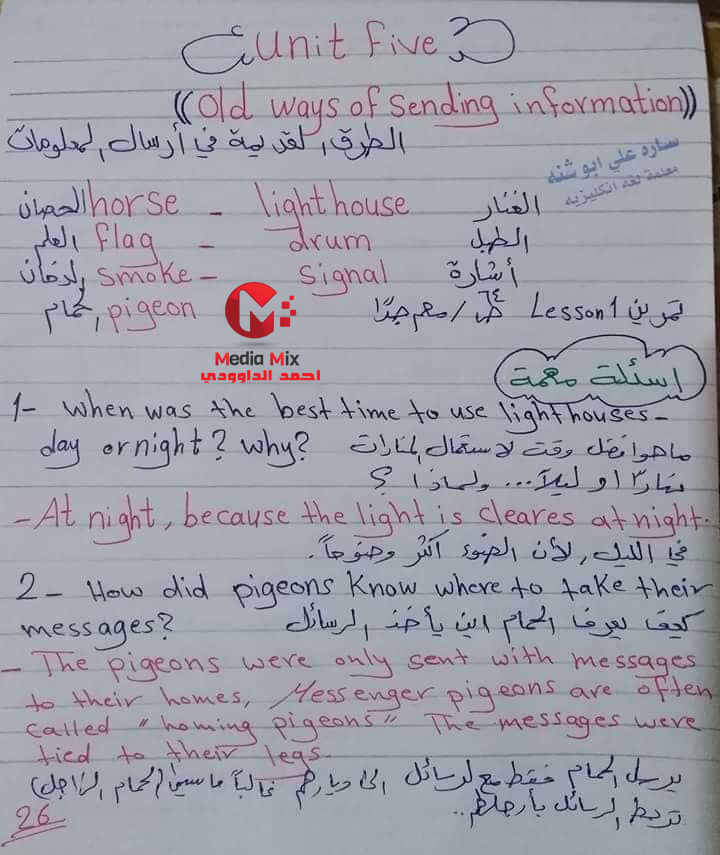 Unit five
((Old ways of sending information))
الطرق القديمة في أرسال المعلومات
ساره علي ابو شنه
معلمة لغه انكليزيه
الحصان horse - lighthouse الفنار
العلم flag - drum الطبل
الدخان smoke - signal أشارة
الحمام pigeon
تمرين Lesson 1 ص ٦٤ / مهم جدًا
M
Media Mix
احمد الداوودي
اسئلة مهمة
1- When was the best time to use lighthouses -
day or night? why? ماهو افضل وقت لاستعمال المنارات
نهارًا او ليلاً... ولماذا ؟
- At night, because the light is cleares at night.
في الليل, لأن الضوء اكثر وضوحاً.
2 - How did pigeons know where to take their
messages? كيف يعرف الحمام اين يأخذ الرسائل
- The pigeons were only sent with messages
to their homes, Messenger pigeons are often
called "homing pigeons" The messages were
tied to their legs.
يرسل الحمام فقط مع الرسائل الى ديارهم غالباً ما سمي (الحمام الزاجل)
تربط الرسائل بأرجلهم..
26